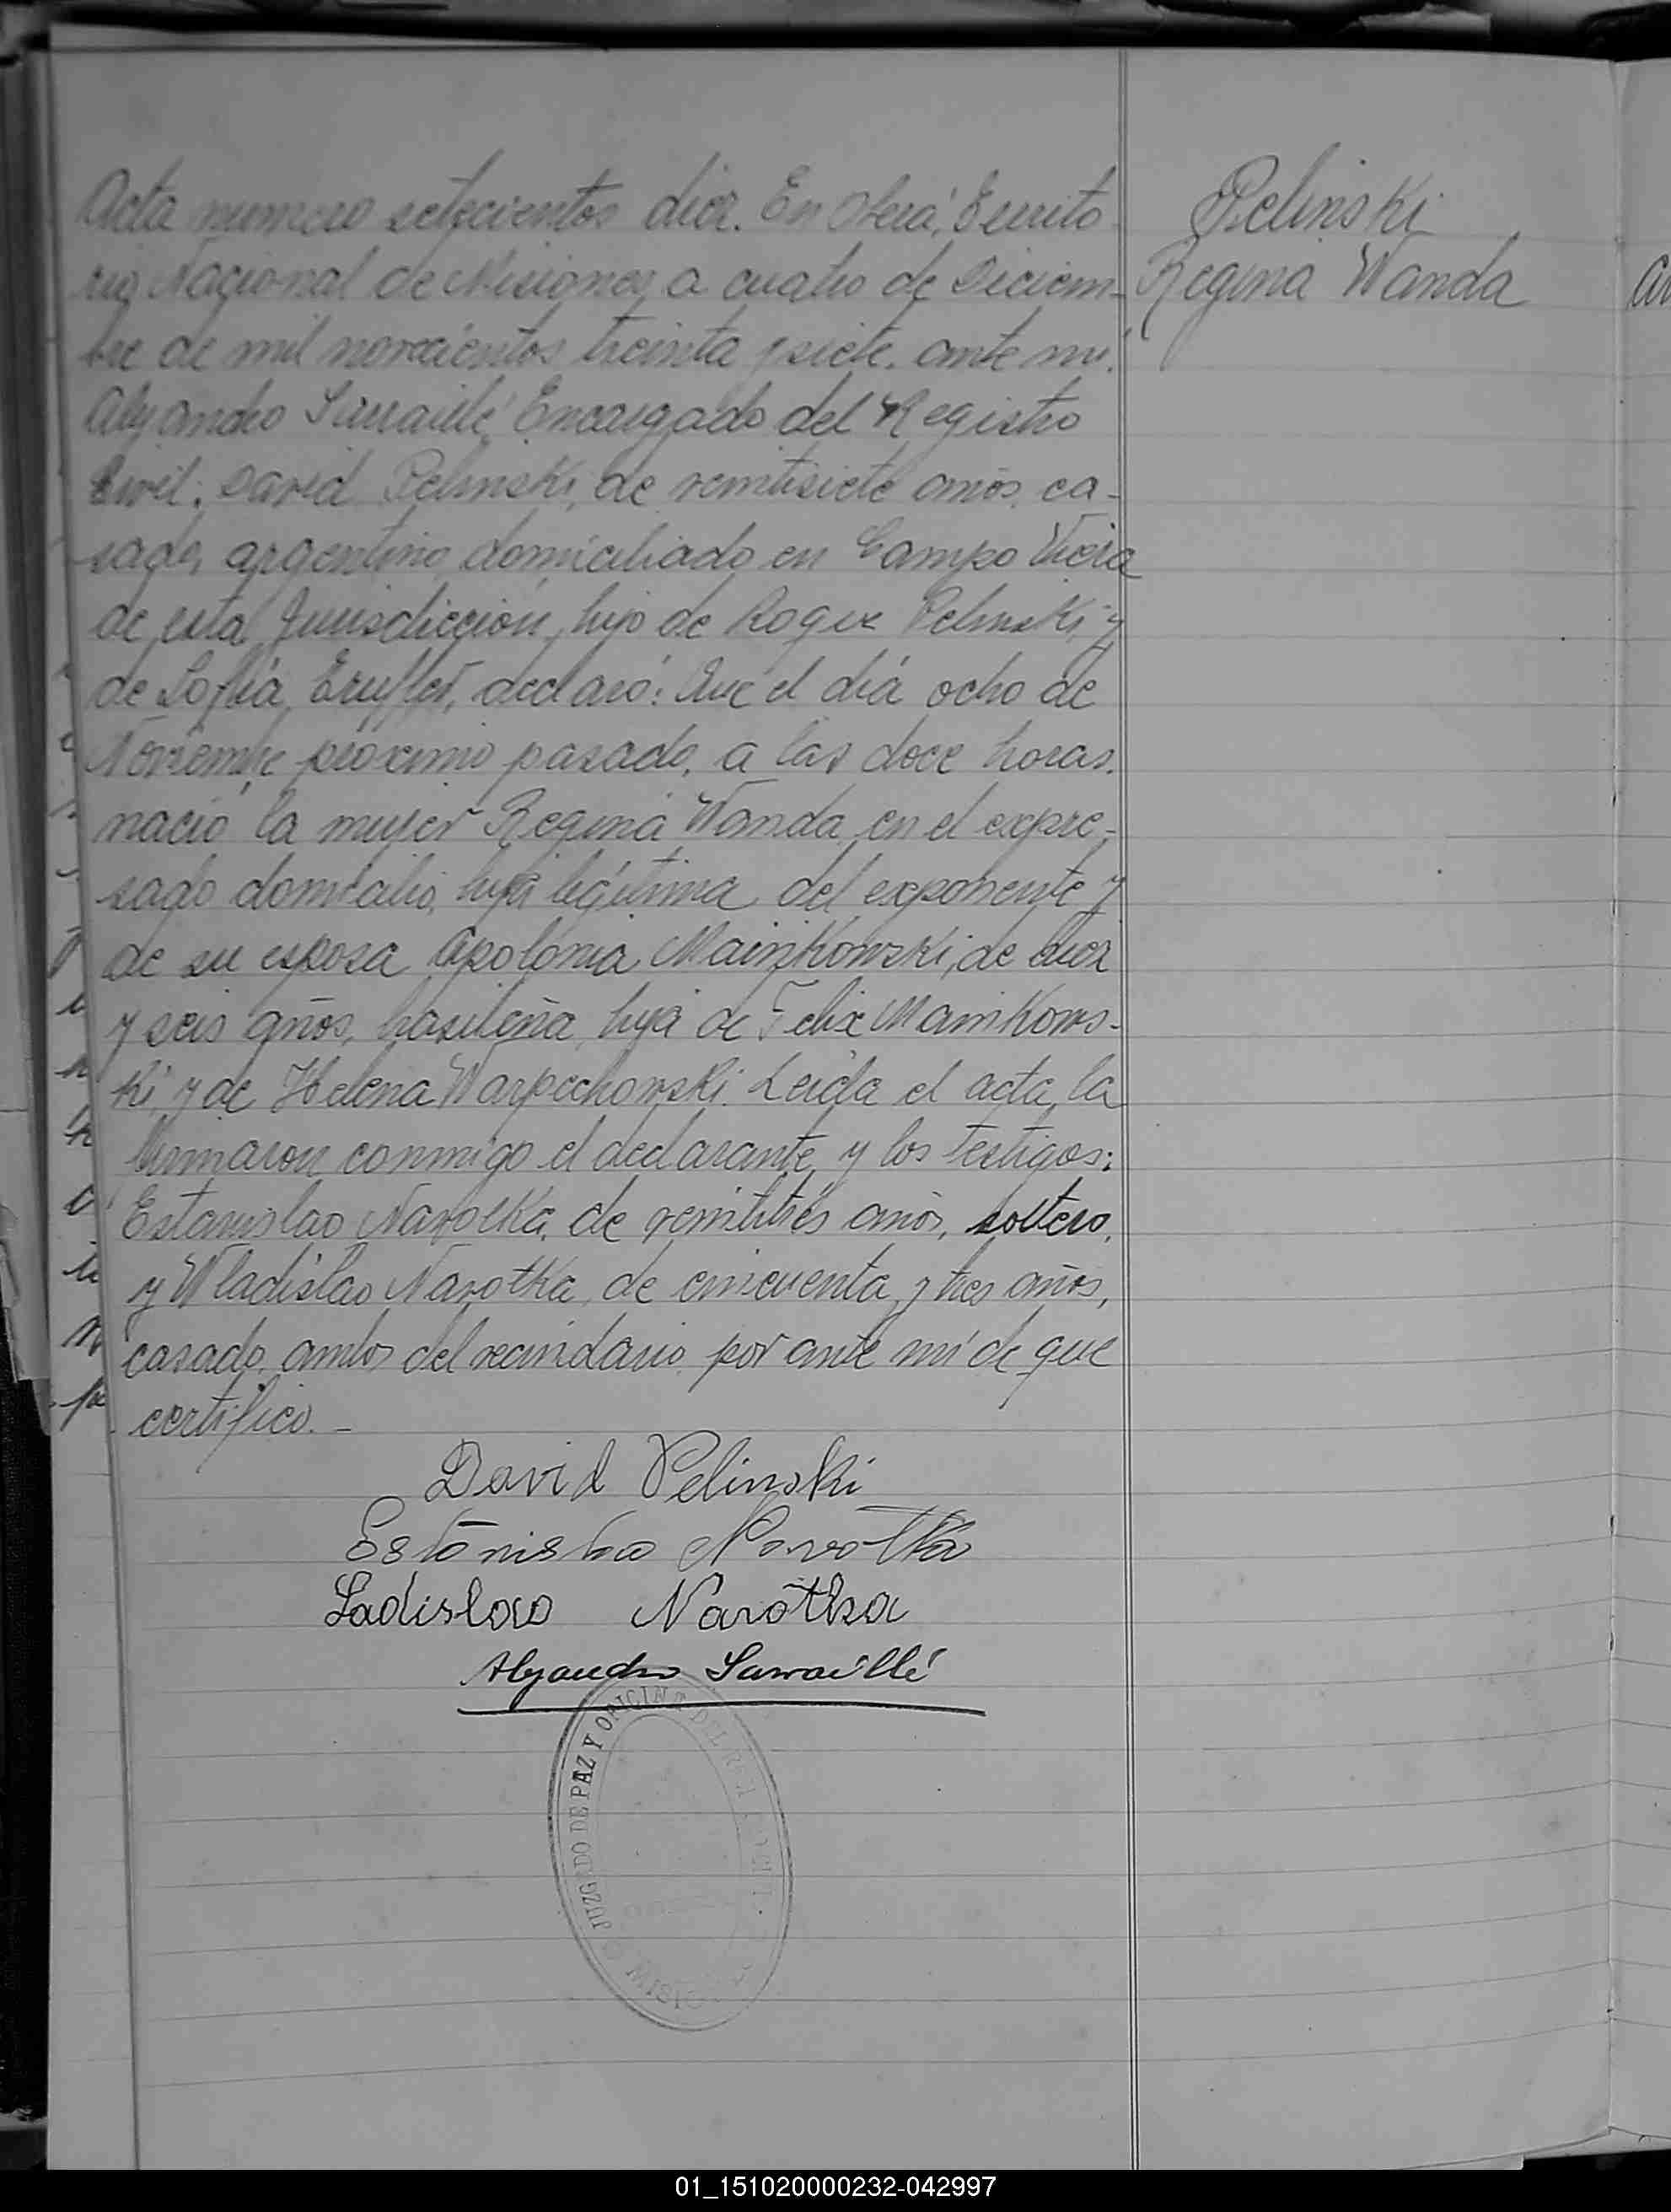 Acta numero setecientos diez. En Oberá, Territo
rio Nacional de Misiones, a cuatro de Diciem-
bre de mil novecientos treinta y siete, ante mi.
Alejandro Sarraillé Encargado del Registro
Civil, David Pelinski, de veintisiete años, ca-
sado, argentino domiciliado en Campo Viera
de esta Jurisdiccion, hijo de Roque Pelinski y
de Sofia declaró: Que el día ocho de
Noviembre próximo pasado, a las doce horas.
nació la mujer Regina Wanda en el expre-
sado domicilio, hija legítima del exponente y
de su esposa Apolonia Mainkowski, de diez
y seis años, brasileña, hija de Felix Mainkows-
ki y de Helena Warpechowski. Leida el acta, la
firmaron conmigo el declarante y los testigos:
Estanislao Narotka, de veintitrés años, soltero,
y Wladislao Narotka, de cincuenta y tres años,
casado, ambos del vecindario por ante mí de que
certifico. -
Pelinski
Regina Wanda
David Pelinski
Estanislao Narotka
Ladislao Narotka
Alejandro Sarraillé
JUZGADO DE PAZ Y OFICINA DEL REG. CIVIL
MISIONES
01_151020000232-042997